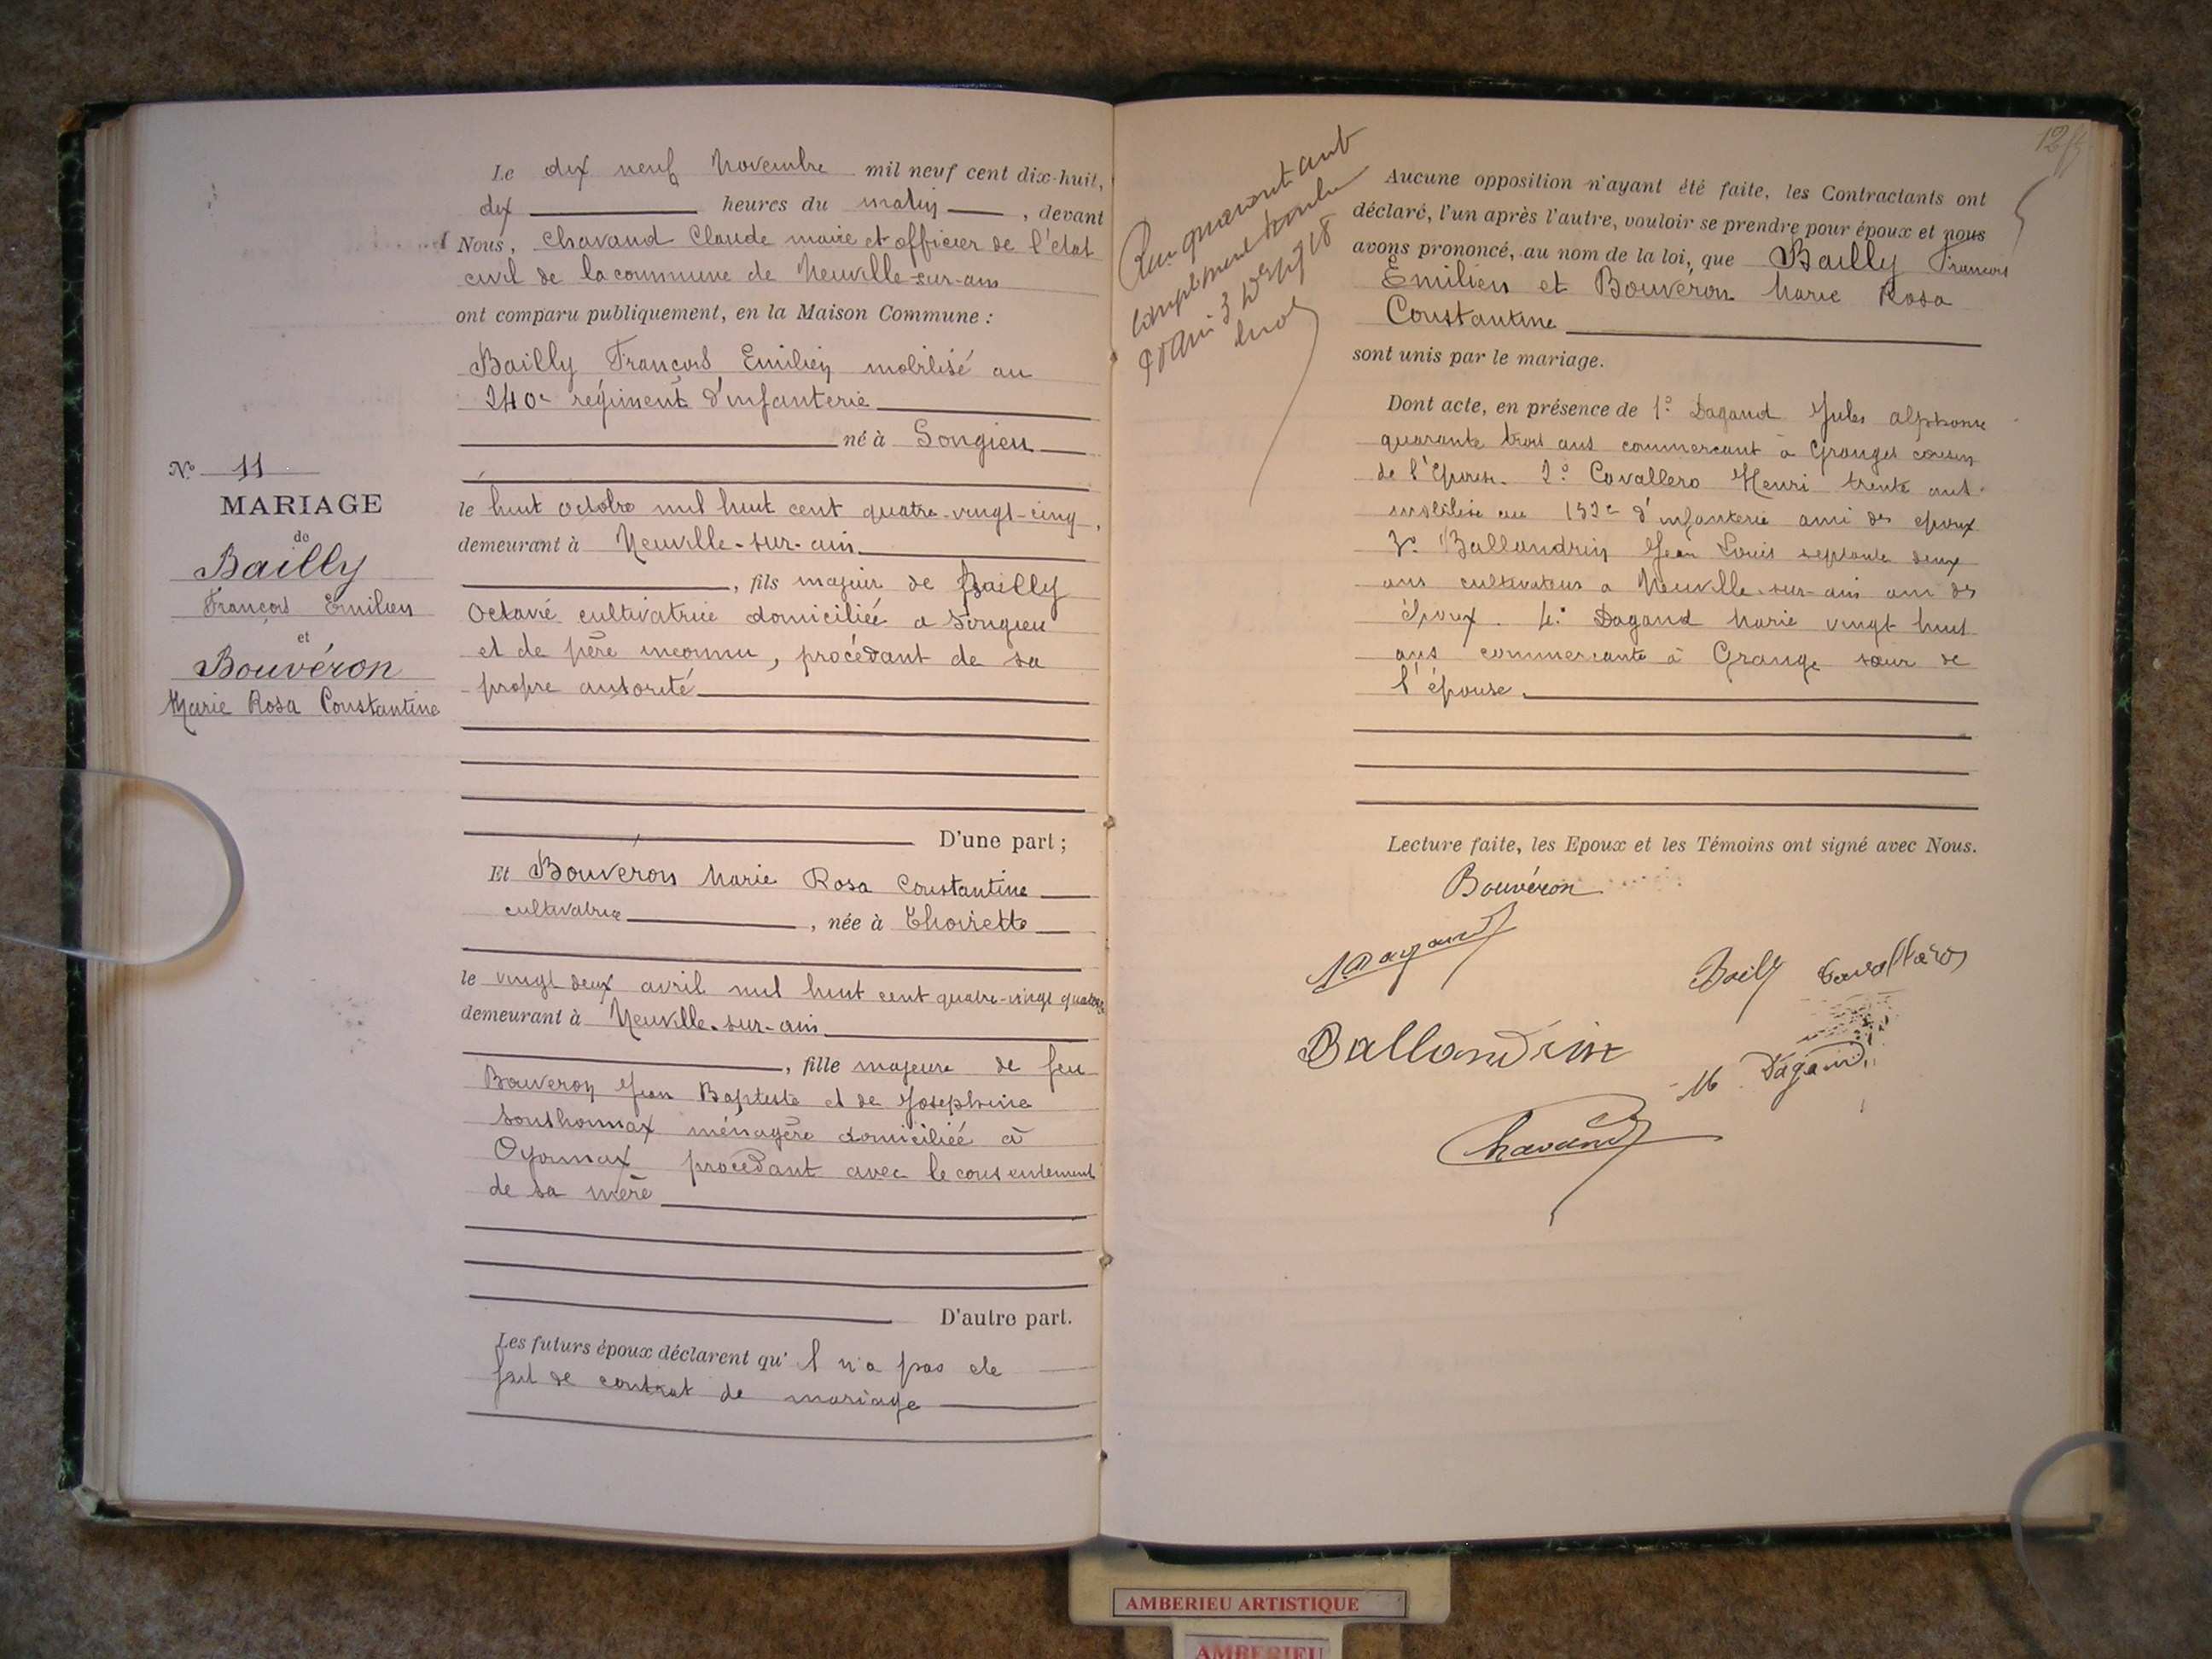 Le dix neuf Novembre mil neuf cent dix-huit,
dix heures du matin, devant
Nous, Chavand Claude maire et officier de l'état
civil de la commune de Neuville-sur-ain
ont comparu publiquement, en la Maison Commune :
Bailly François Emilien mobilisé au
240e régiment d'infanterie
né à Songieu
le huit octobre mil huit cent quatre-vingt-cinq,
demeurant à Neuville-sur-ain
, fils majeur de Bailly
Octavie cultivatrice domiciliée a Songieu
et de père inconnu, procédant de sa
propre autorité
D'une part ;
Et Bouvéron Marie Rosa Constantine
cultivatrice, née à Thoirette
le vingt deux avril mil huit cent quatre-vingt quatorze
demeurant à Neuville-sur-ain
, fille majeure de feu
Bouveron Jean Baptiste et de Josephine
Southonnax ménagère domiciliée à
Oyonnax procédant avec le consentement
de sa mère
D'autre part.
Les futurs époux déclarent qu'il n'a pas ete
fait de contrat de mariage
No 11
MARIAGE
de
Bailly
François Emilien
et
Bouvéron
Marie Rosa Constantine
12
Aucune opposition n'ayant été faite, les Contractants ont
déclaré, l'un après l'autre, vouloir se prendre pour époux et nous
avons prononcé, au nom de la loi, que Bailly François
Emilien et Bouvéron Marie Rosa
Constantine
sont unis par le mariage.
Dont acte, en présence de 1° Dagand Jules alphonse
quarante trois ans commercant à Granges cousin
de l'Epouse. 2° Cavallero Henri trente ans
mobilisé au 152e d'infanterie ami des epoux
3° Ballandrin Jean Louis septante deux
ans cultivateur a Neuville-sur-ain ami des
époux. 4° Dagand Marie vingt huit
ans commercante à Grange sœur de
l'épouse.
Lecture faite, les Epoux et les Témoins ont signé avec Nous.
Bouvéron
Dagand
Bailly Cavallero
Ballandrin
M Dagand
Chavand
AMBERIEU ARTISTIQUE
AMBERIEU